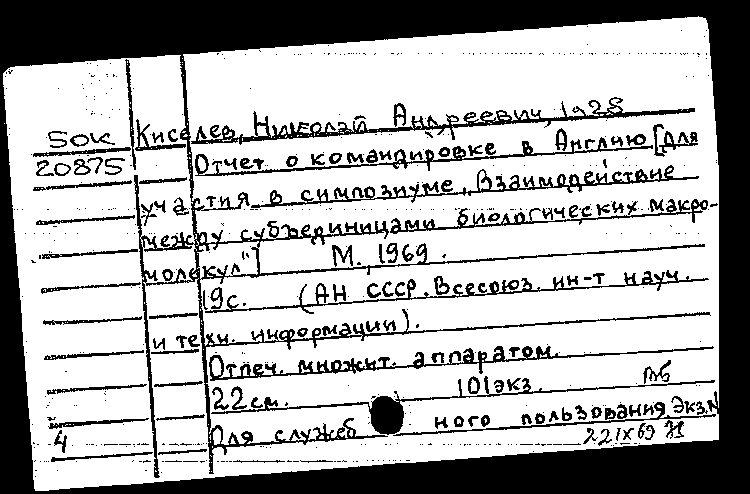 50К Киселев, Николай Андреевич, 1928
20875 Отчет о командировке в Англию [для
участия в симпозиуме „Взаимодействие
между субъединицами биологических макро-
молекул"] М., 1969.
19с. (АН СССР. Всесоюз. ин-т науч.
и техн. информации).
Отпеч. множит. аппаратом.
22см. 101экз.
4 Для служебного пользования Экз.N
221X69